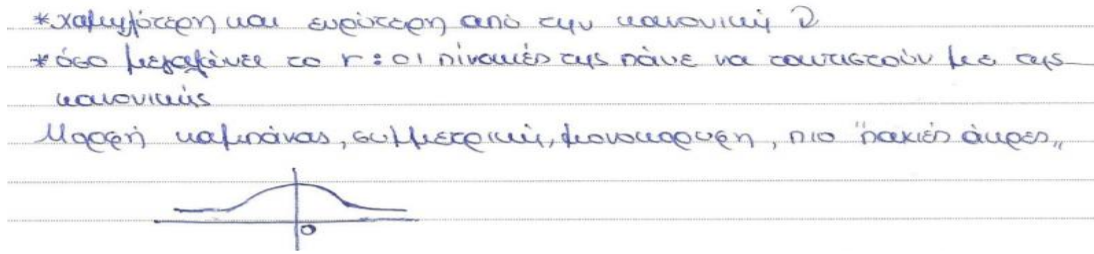 *χαμηλότερη και ευρύτερη από την κανονική
*όσο μεγαλώνει το r : οι πίνακές της πάνε να ταυτιστούν με της
κανονικής
Μορφή καμπάνας, συμμετρική, μονοκόρυφη, πιο "παχιές άκρες"
0